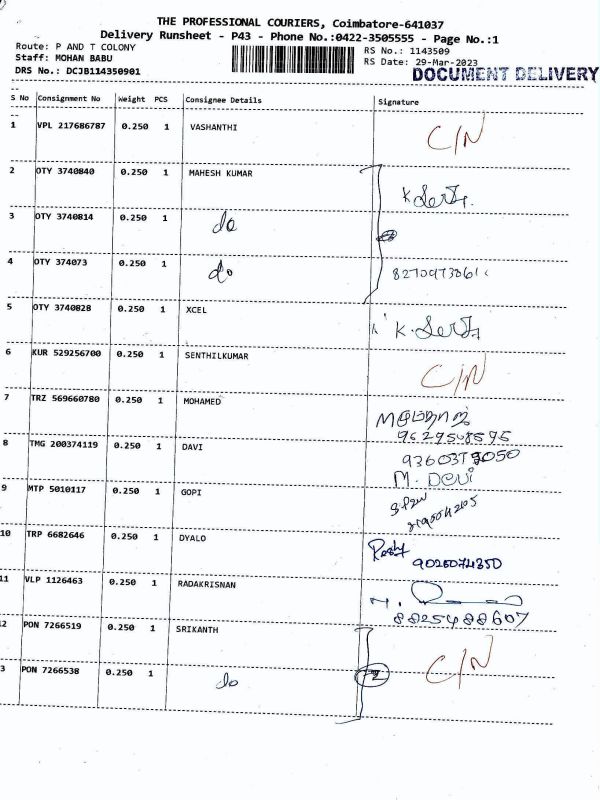 THE PROFESSIONAL COURIERS, Coimbatore-641037
Delivery Runsheet - P43 - Phone No.:0422-3505555 - Page No.:1
Route: P AND T COLONY
RS No.: 1143509
Staff: MOHAN BABU
RS Date: 29-Mar-2023
DRS No.: DCJB114350901
DOCUMENT DELIVERY
S No Consignment No Weight PCS Consignee Details Signature
1 VPL 217686787 0.250 1 VASHANTHI C/N
2 OTY 3740840 0.250 1 MAHESH KUMAR
3 OTY 3740814 0.250 1 do
4 OTY 374073 0.250 1 do
5 OTY 3740828 0.250 1 XCEL
6 KUR 529256700 0.250 1 SENTHILKUMAR C/N
7 TRZ 569660780 0.250 1 MOHAMED
9629508595
8 TMG 200374119 0.250 1 DAVI
M. Devi
9 MTP 5010117 0.250 1 GOPI
10 TRP 6682646 0.250 1 DYALO
9026074350
11 VLP 1126463 1 RADAKRISNAN
8825488607
12 PON 7266519 0.250 1 SRIKANTH
3 PON 7266538 0.250 1 do 2 C/N